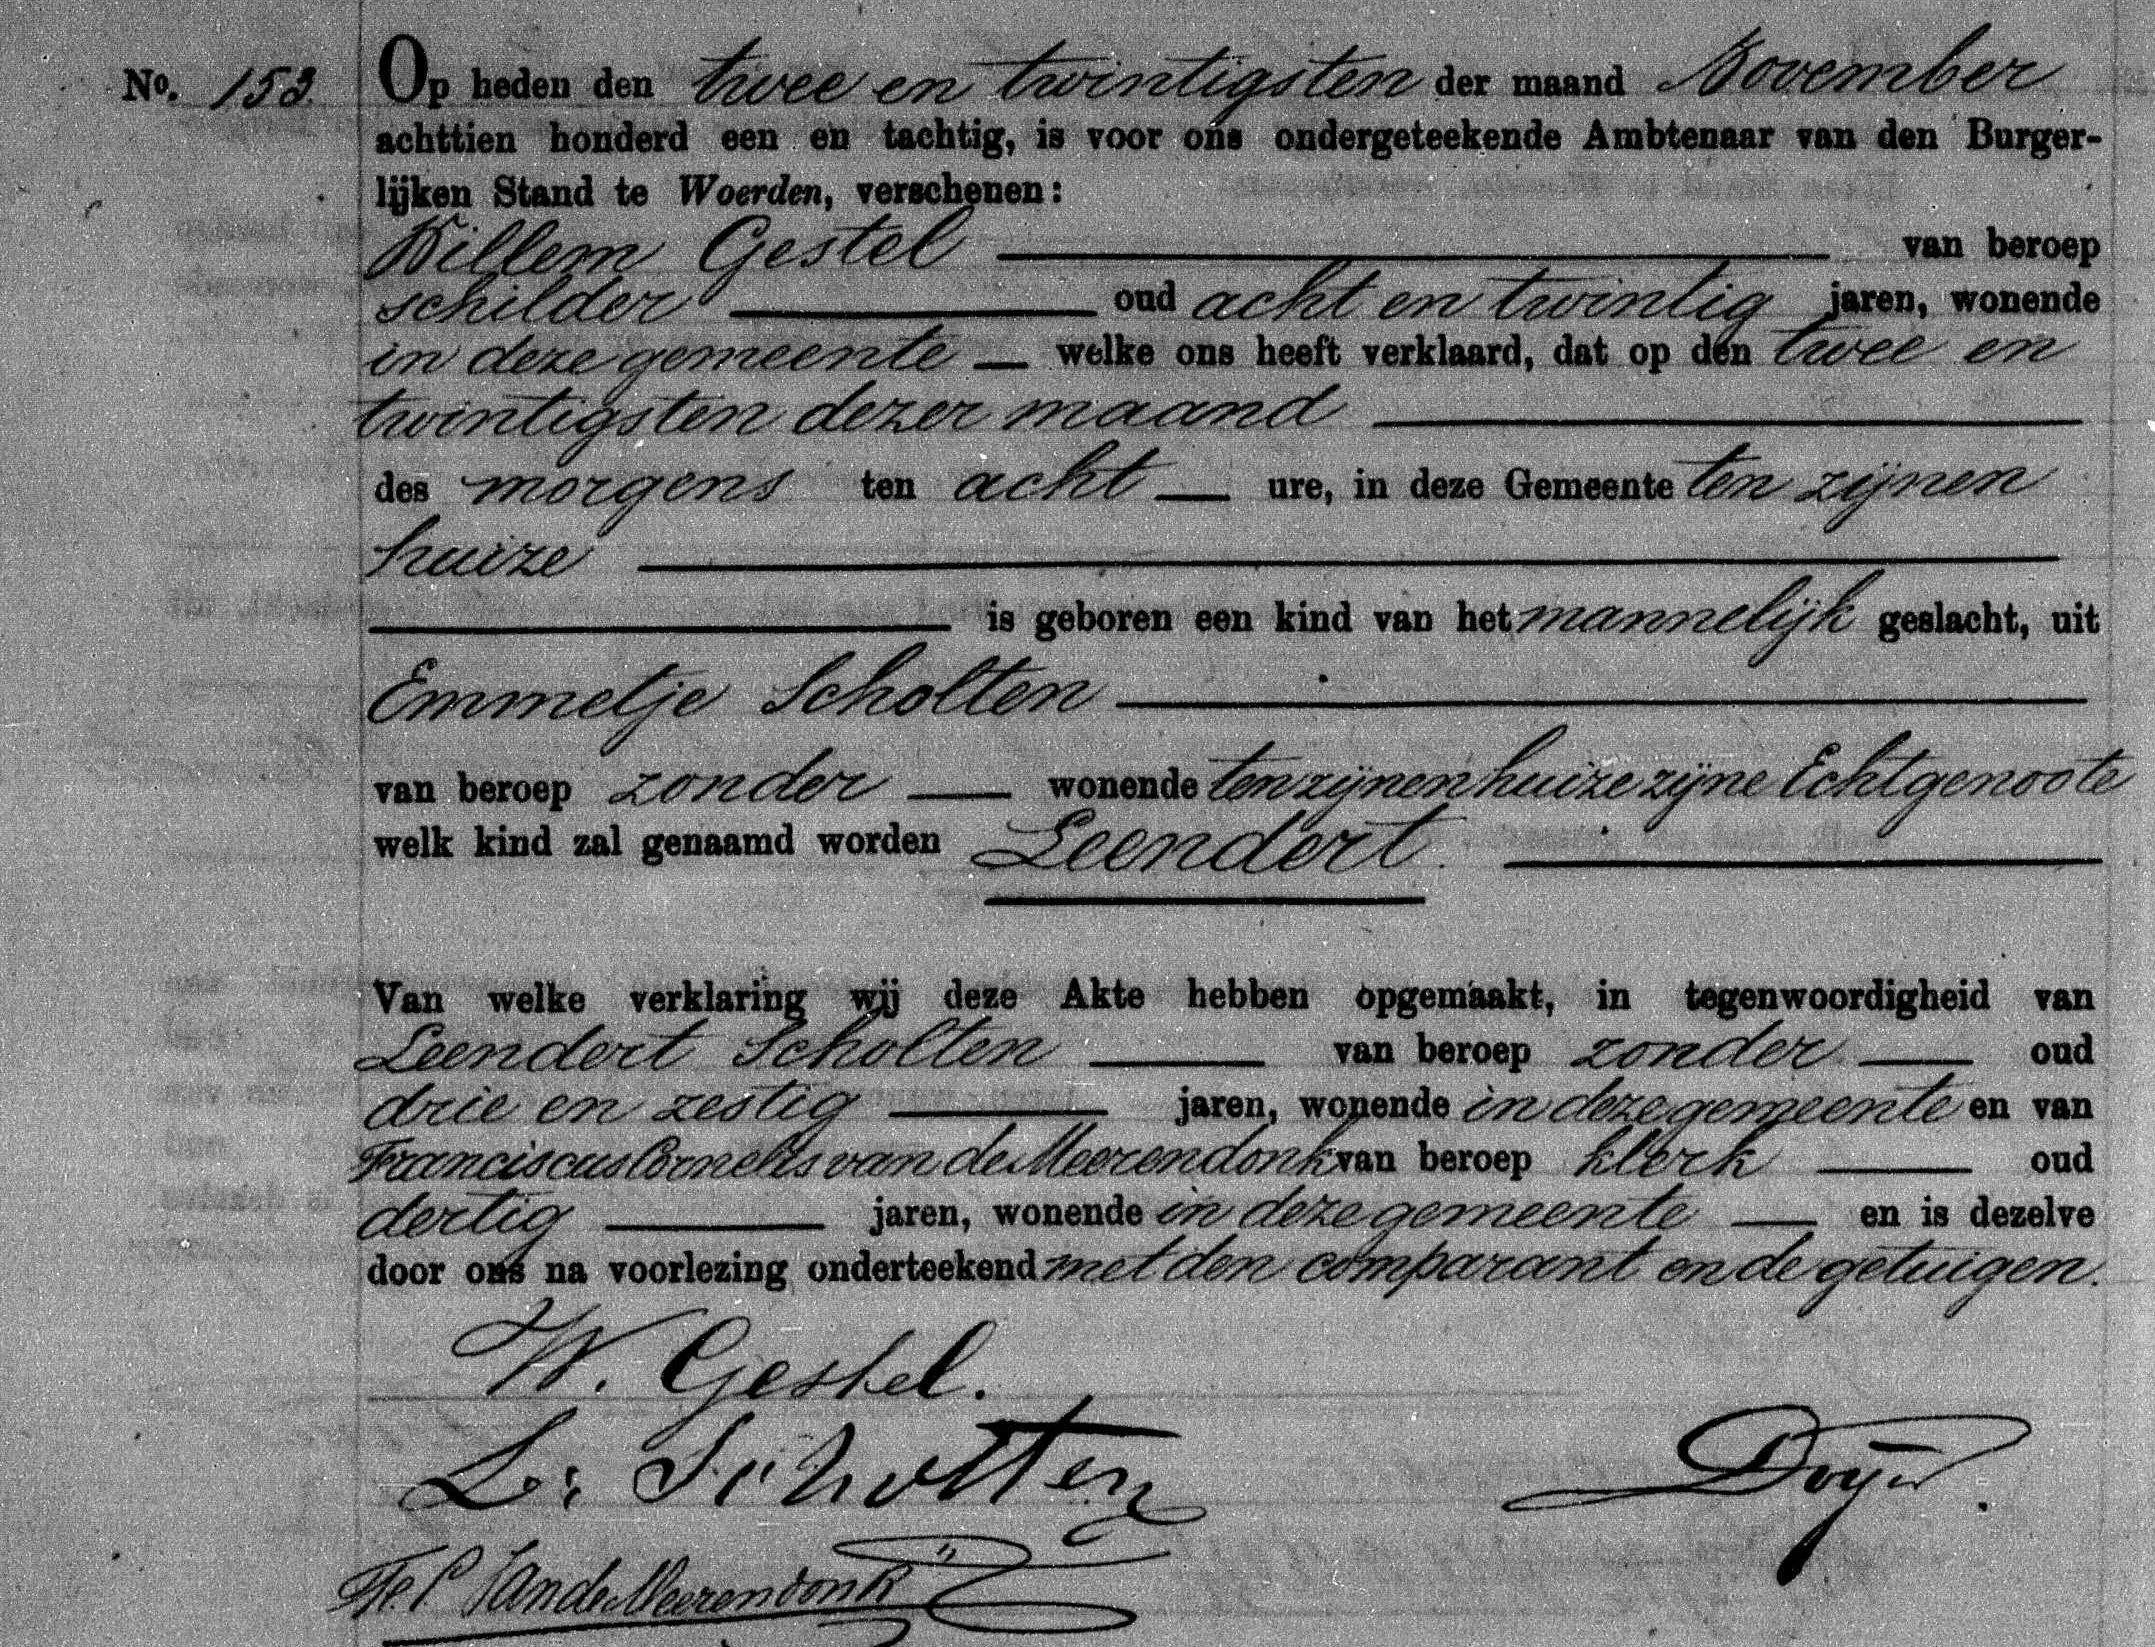 No. 153. Op heden den twee en twintigsten der maand November
achttien honderd een en tachtig, is voor ons ondergeteekende Ambtenaar van den Burger-
lijken Stand te Woerden, verschenen:
Willem Gestel van beroep
schilder oud acht en twintig jaren, wonende
in deze gemeente welke ons heeft verklaard, dat op den twee en
twintigsten dezer maand
des morgens ten acht ure, in deze Gemeente ten zijnen
huize
is geboren een kind van het mannelijk geslacht, uit
Emmetje Scholten
van beroep zonder wonende ten zijnen huize zijne Echtgenoote
welk kind zal genaamd worden Leendert.
Van welke verklaring wij deze Akte hebben opgemaakt, in tegenwoordigheid van
Leendert Scholten van beroep zonder oud
drie en zestig jaren, wonende in deze gemeente en van
Franciscus Cornelis van de Meerendonk van beroep klerk oud
dertig jaren, wonende in deze gemeente en is dezelve
door ons na voorlezing onderteekend met den comparant en de getuigen.
W. Gestel.
L: Scholten
Fr. C van de Meerendonk